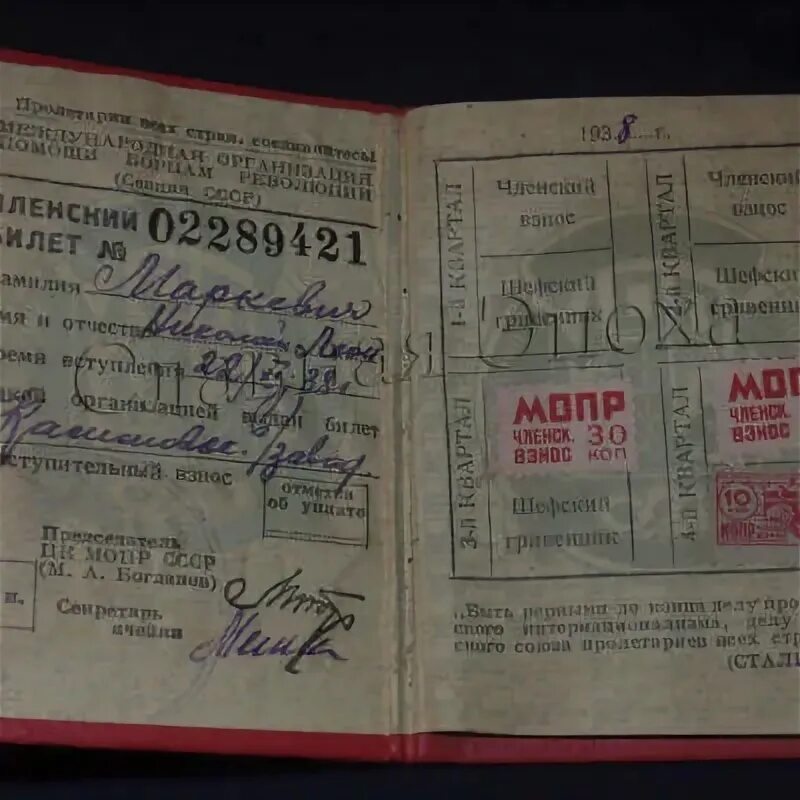 Пролетарии всех стран, соединяйтесь!
МЕЖДУНАРОДНАЯ ОРГАНИЗАЦИЯ
ПОМОЩИ БОРЦАМ РЕВОЛЮЦИИ
(Секция СССР)
ЧЛЕНСКИЙ
БИЛЕТ № 02289421
амилия Маркевич
мя и отчество Николай
ремя вступления 22
кой организацией выдан билет
завод.
ступительный взнос
отметка
об уплате
Председатель
ЦК МОПР СССР
(М. А. Богданов)
Секретарь
ячейки
193 8 г.
1-й КВАРТАЛ
Членский
взнос
Шефский
гривенник
2-й КВАРТАЛ
Членский
взнос
Шефский
гривенник
3-й КВАРТАЛ
МОПР
ЧЛЕНСК. 30
ВЗНОС КОП
Шефский
гривенник
4-й КВАРТАЛ
МОП
ЧЛЕНСК.
ВЗНОС
10
КОП.
„Быть верными до конца делу про
ского интернационализма, делу
ского союза пролетариев всех стр
(СТАЛ
Эпоха